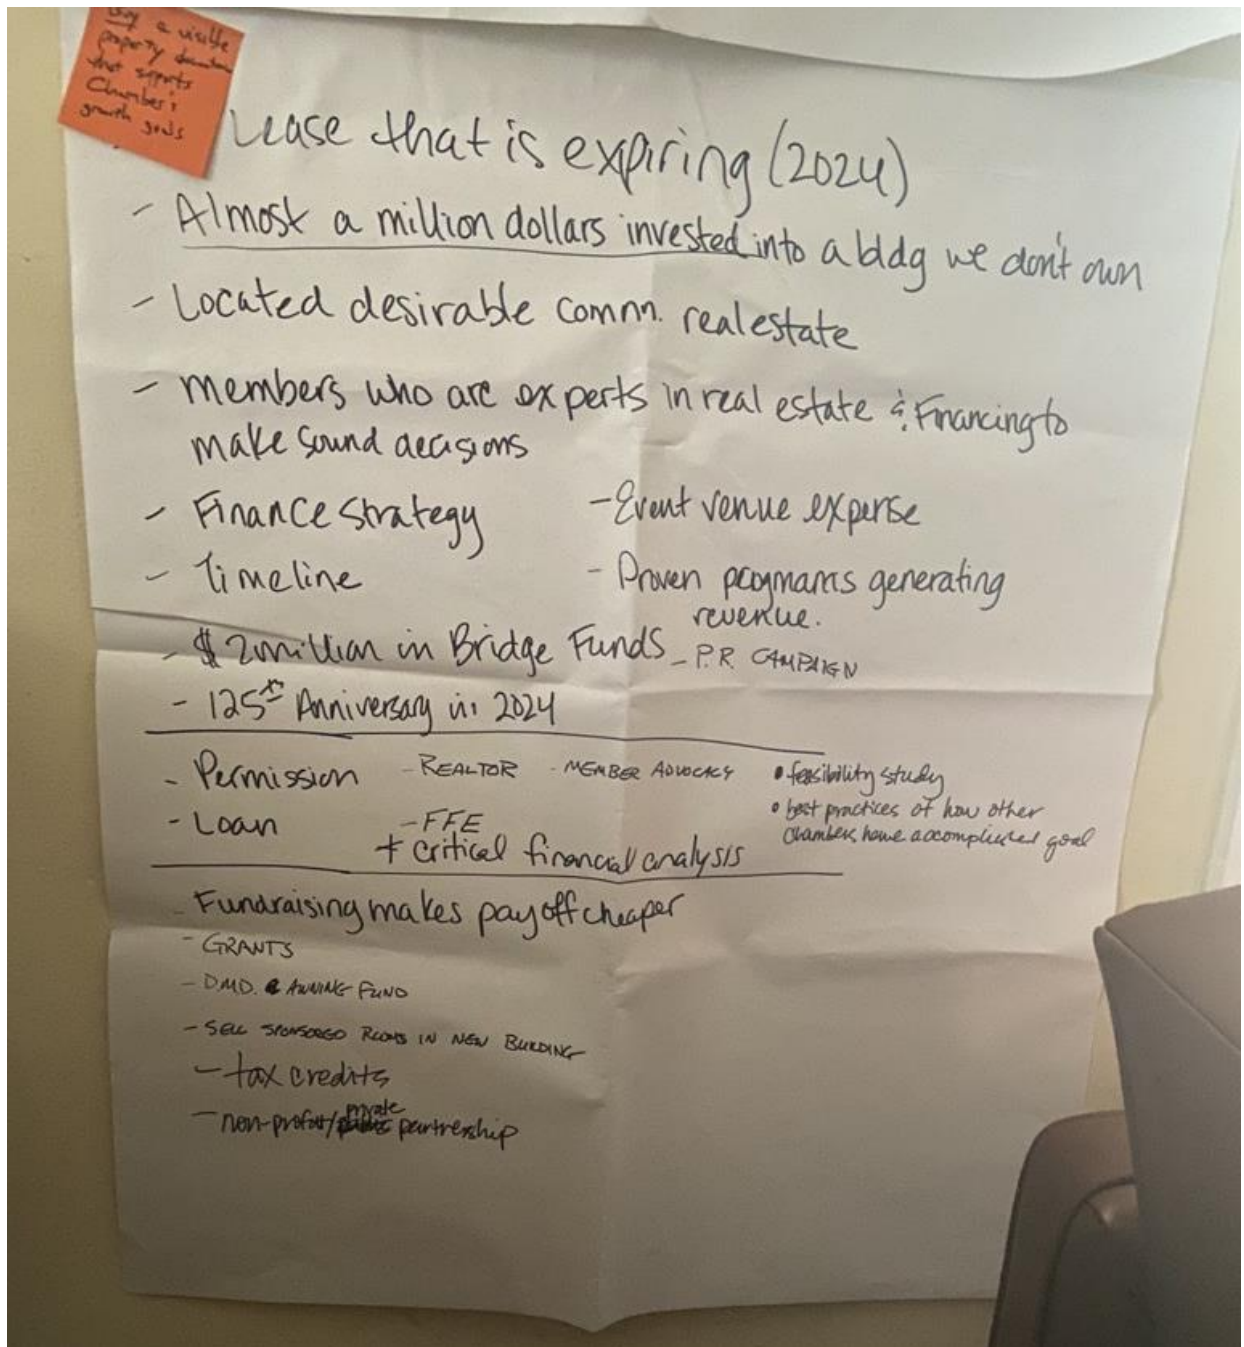 Buy a visible
property downtown
that supports
Chamber's
growth goals
Lease that is expiring (2024)
- Almost a million dollars invested into a bldg we don't own
- Located desirable comm. real estate
- members who are experts in real estate & Financing to
make sound decisions
- Finance strategy
- Event venue expense
- Timeline
- Proven programs generating
revenue.
- $2 million in Bridge Funds
- P.R. CAMPAIGN
- 125th Anniversary in 2024
- Permission
- REALTOR
- MEMBER ADVOCACY
• feasibility study
- Loan
- FFE
• best practices of how other
Chambers have accomplished goal
+ critical financial analysis
- Fundraising makes payoff cheaper
- GRANTS
- D.M.D. & AWNING FUND
- SELL SPONSORED ROOMS IN NEW BUILDING
- tax credits
- non-profit/private partnership